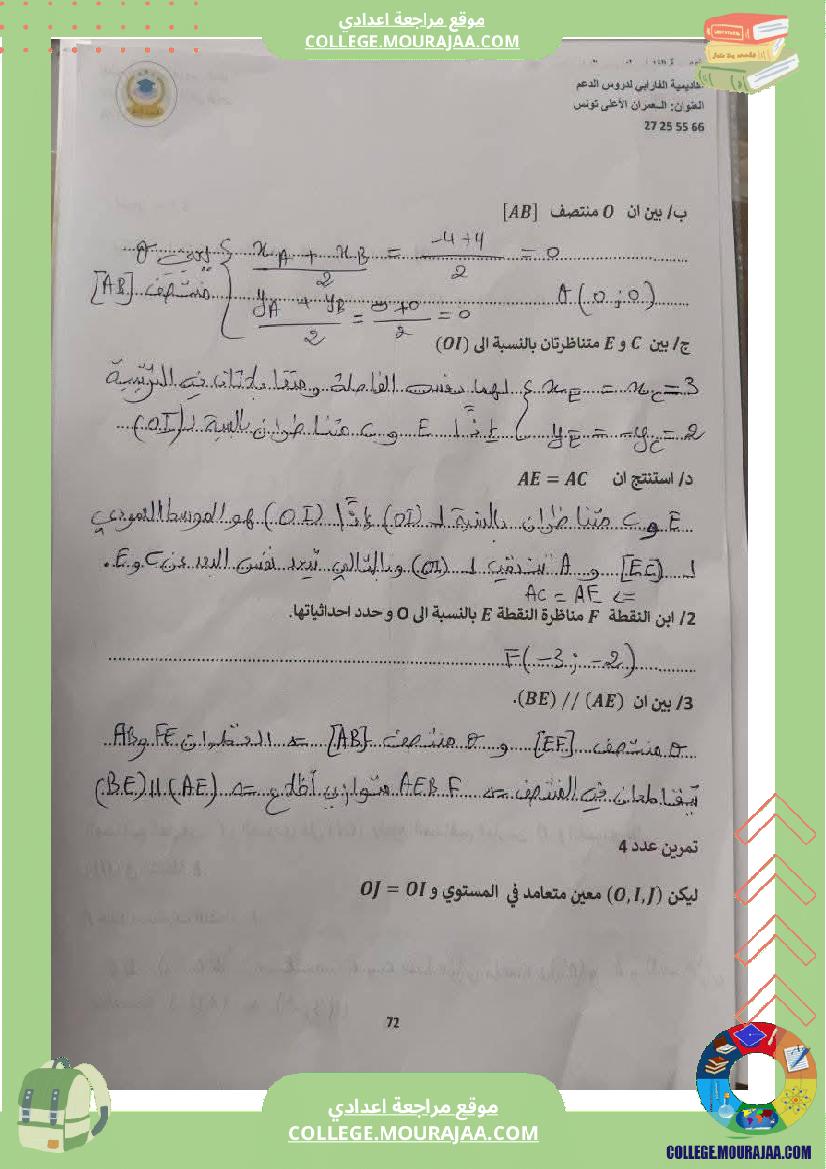 موقع مراجعة اعدادي
COLLEGE.MOURAJAA.COM
اكاديمية الفارابي لدروس الدعم
العنوان: العمران الأعلى تونس
27 25 55 66
ب/ بين ان O منتصف [AB]
x_A + x_B / 2 = -4+4 / 2 = 0
منتصف [AB]
O(0;0)
y_A + y_B / 2 = 0+0 / 2 = 0
ج/ بين C و E متناظرتان بالنسبة الى (OI)
x_E = x_C = 3 لهما نفس الفاصلة و متقابلتان في الترتيبة
y_E = -y_C = 2 إذا E و C متناظرتان بالنسبة لـ (OI)
د/ استنتج ان AE = AC
E و C متناظرتان بالنسبة لـ (OI) إذا (OI) هو الموسط العمودي
لـ [EC] و A تنتمي لـ (OI) وبالتالي تبعد نفس البعد عن C و E.
AC = AE <=
2/ ابن النقطة F مناظرة النقطة E بالنسبة الى O و حدد احداثياتها.
F(-3; -2)
3/ بين ان (AE) // (BE).
O منتصف [EF] و O منتصف [AB] => القطران FE و AB
يتقاطعان في المنتصف => AEBF متوازي أضلاع => (AE) // (BE)
تمرين عدد 4
ليكن (O, I, J) معين متعامد في المستوي و OJ = OI
72
موقع مراجعة اعدادي
COLLEGE.MOURAJAA.COM
COLLEGE.MOURAJAA.COM